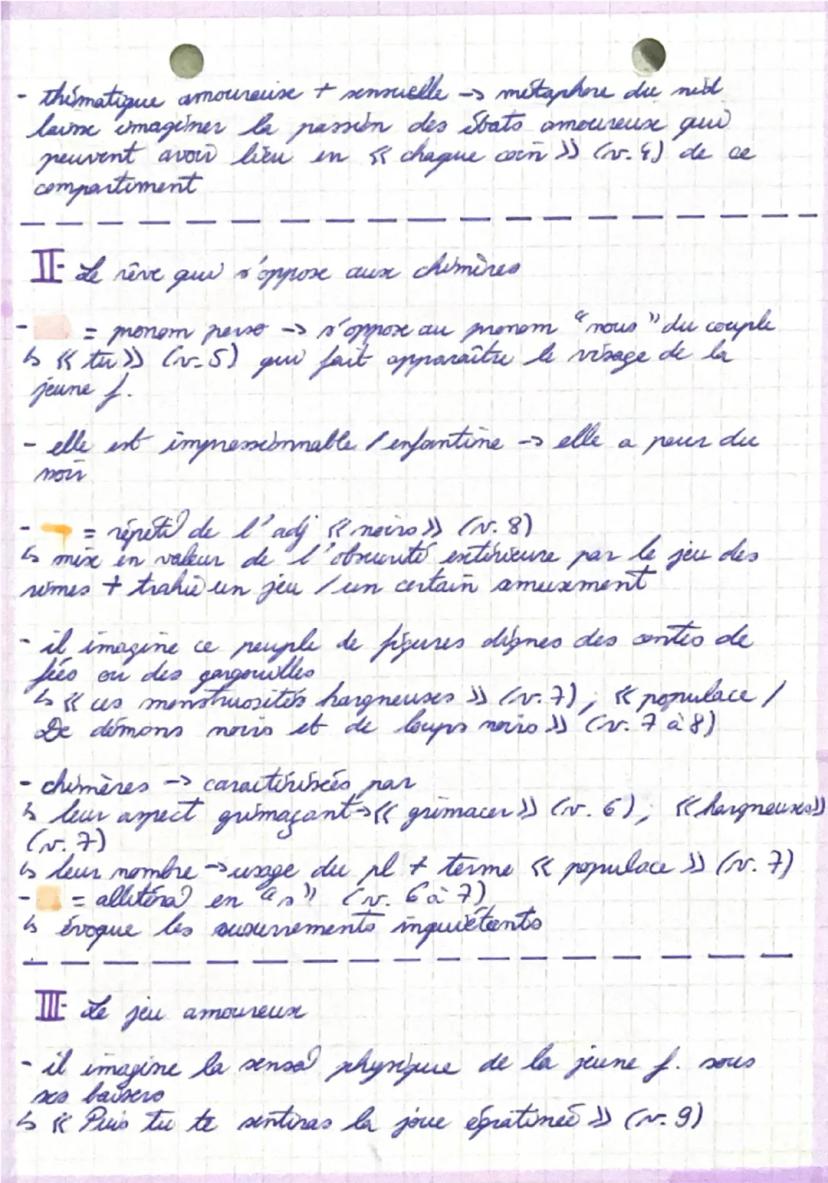 - thématique amoureuse + sensuelle → métaphore du nid
laisse imaginer la passion des ébats amoureux qui
peuvent avoir lieu en « chaque coin » (v. 4) de ce
compartiment
II- Le rêve qui s'oppose aux chimères
- = pronom perso → s'oppose au pronom "nous" du couple
↳ « tu » (v. 5) qui fait apparaître le visage de la
jeune f.
- elle est impressionnable / enfantine → elle a peur du
noir
- = répéti° de l'adj « noirs » (v. 8)
↳ mise en valeur de l'obscurité extérieure par le jeu des
rimes + trahie un jeu / un certain amusement
- il imagine ce peuple de figures dignes des contes de
fées ou des gargouilles
↳ « ces monstruosités hargneuses » (v. 7) ; « populace /
De démons noirs et de loups noirs » (v. 7 à 8)
- chimères → caractérisées par
↳ leur aspect grimaçant → « grimacer » (v. 6) ; « hargneuses »
(v. 7)
↳ leur nombre → usage du pl + terme « populace » (v. 7)
- = allitéra° en "s" (v. 6 à 7)
↳ évoque les susurrements inquiétants
III- Le jeu amoureux
- il imagine la sensa° physique de la jeune f. sous
ses baisers
↳ « Puis tu te sentiras la joue égratinée » (v. 9)